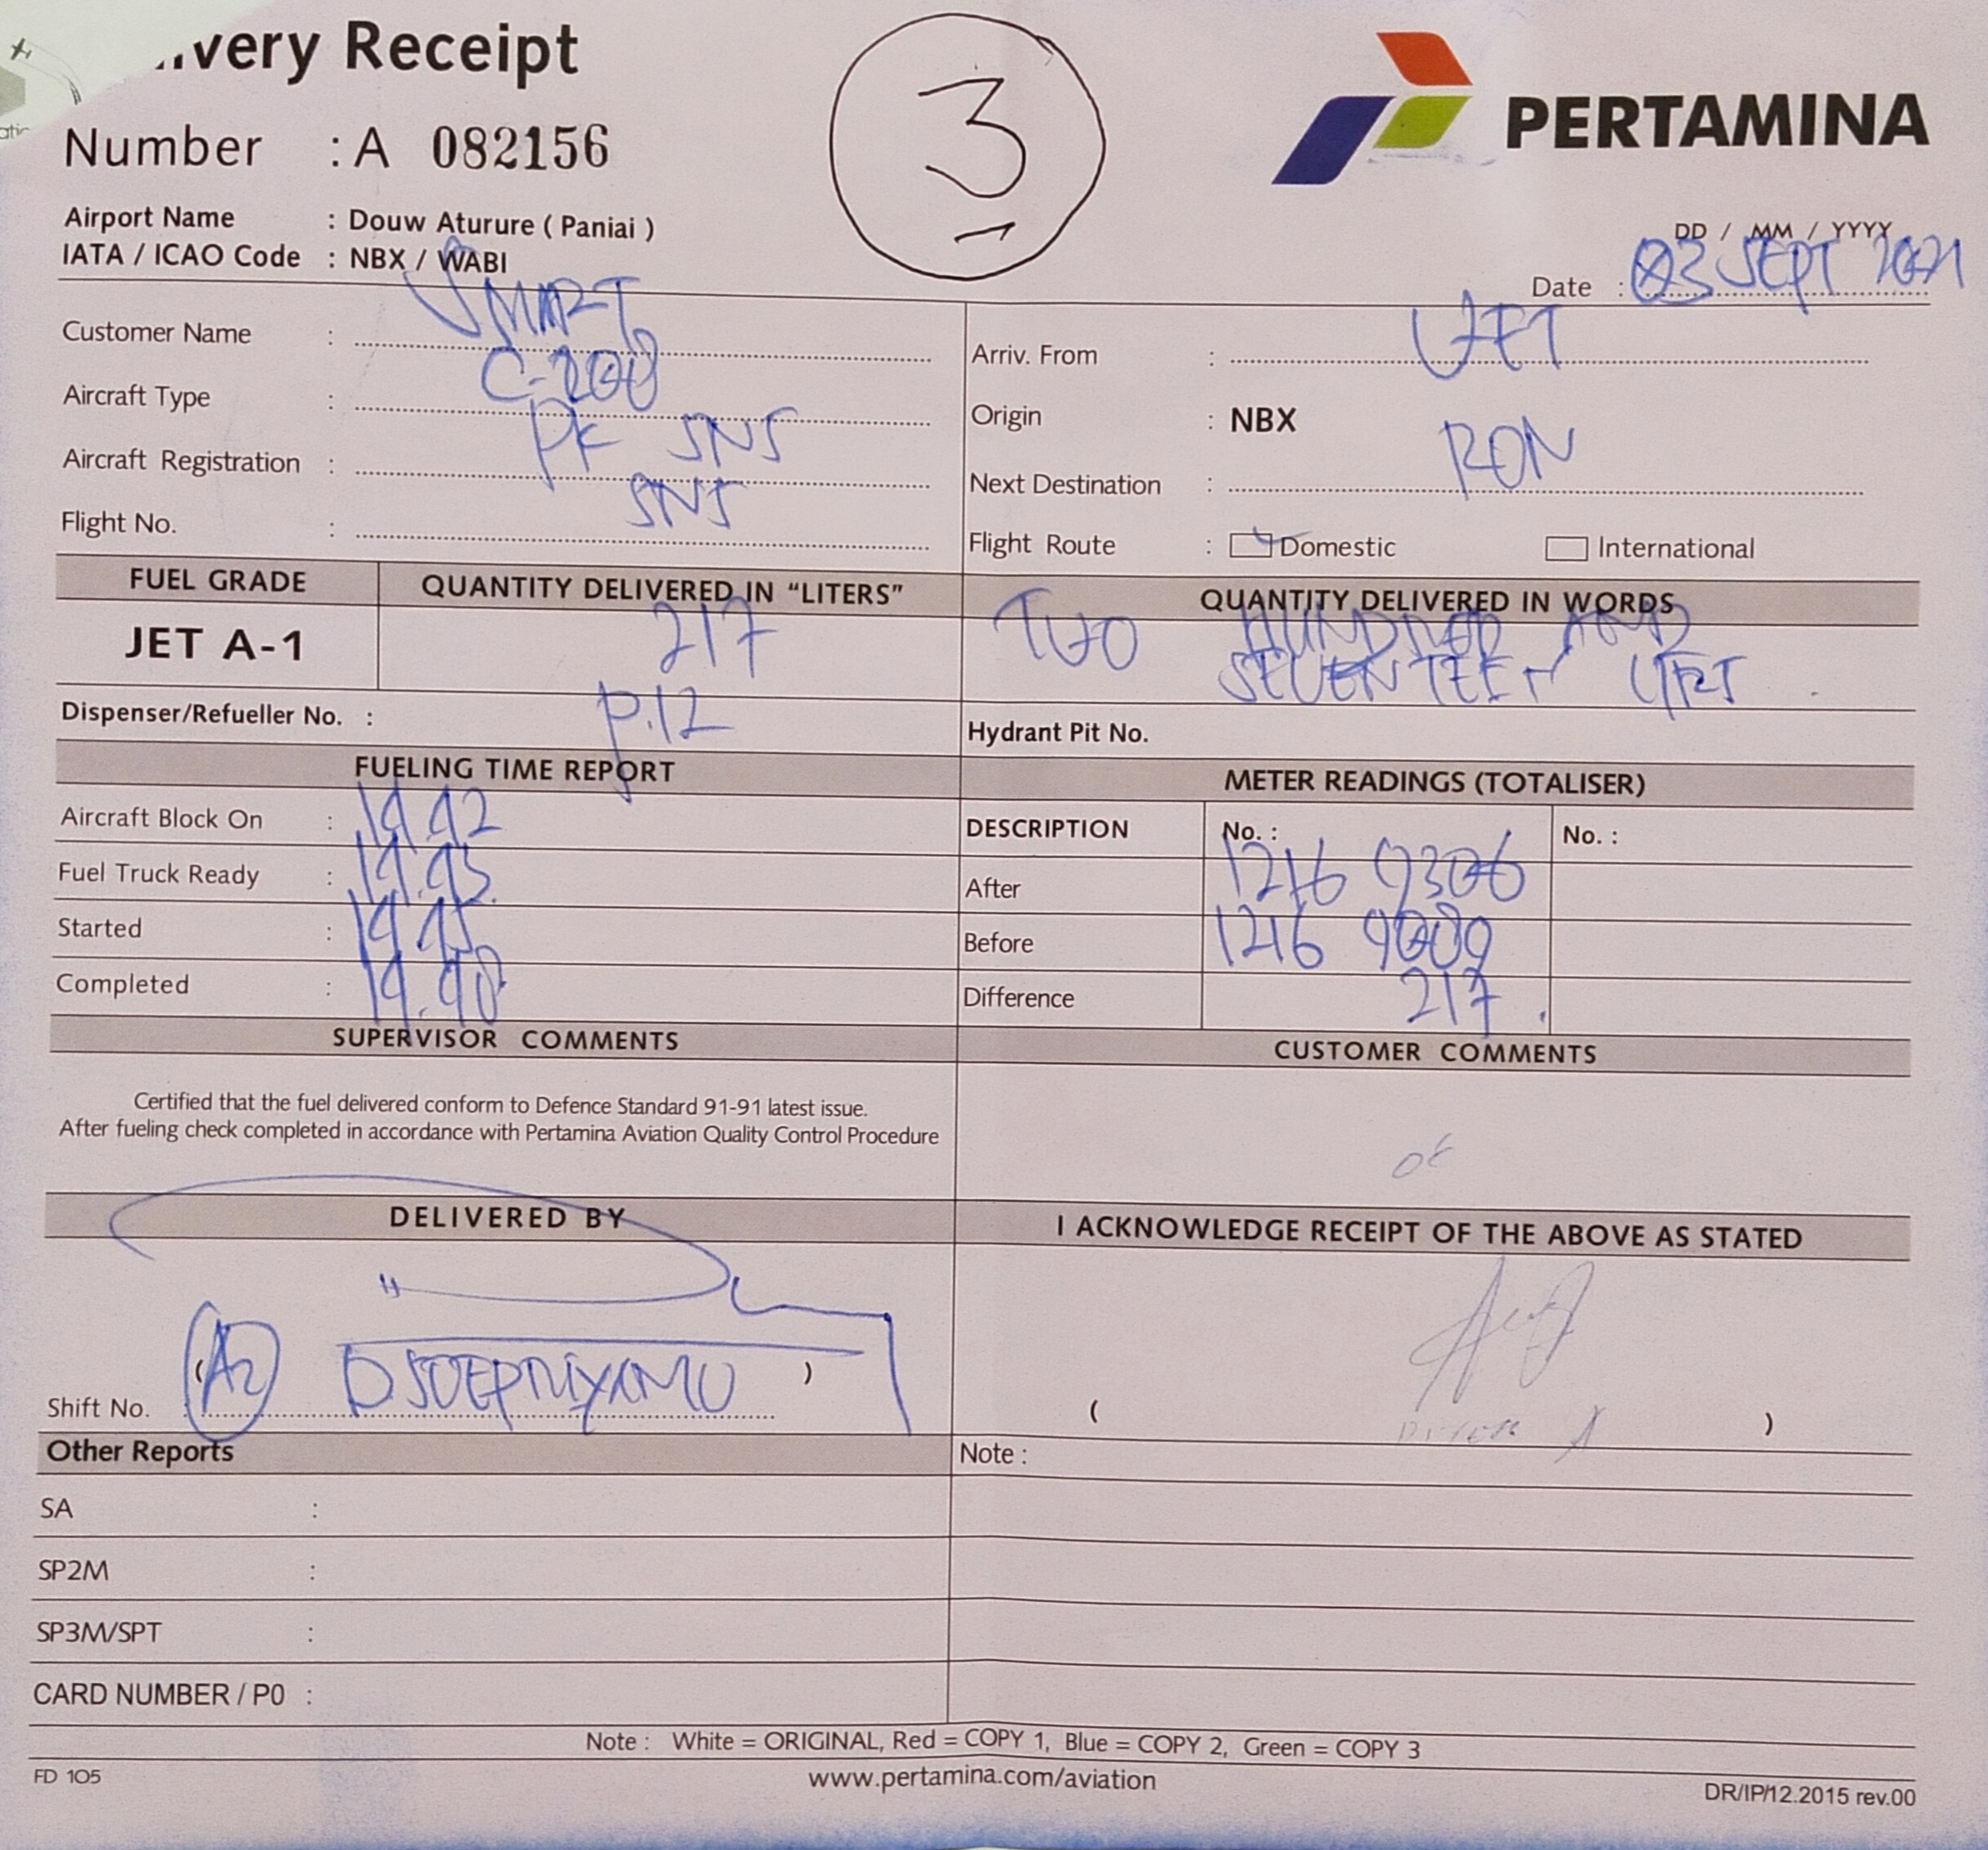 ivery Receipt
3
PERTAMINA
Number : A 082156
Airport Name : Douw Aturure ( Paniai )
IATA / ICAO Code : NBX / WABI
DD / MM / YYYY
Date : 03 SEPT 2021
Customer Name : SMART
Aircraft Type : C-208
Aircraft Registration : PK SNS
Flight No. : SNS
Arriv. From :
Origin : NBX
Next Destination : RON
Flight Route : Domestic International
FUEL GRADE QUANTITY DELIVERED IN “LITERS” QUANTITY DELIVERED IN WORDS
JET A-1 217 TWO HUNDRED AND
SEVENTEEN
Dispenser/Refueller No. : P.12 Hydrant Pit No.
FUELING TIME REPORT METER READINGS (TOTALISER)
Aircraft Block On : 14.42 DESCRIPTION No. : No. :
Fuel Truck Ready : After 1216 9306
Started : 14.45 Before 1216 9089
Completed : 14.48 Difference 217
SUPERVISOR COMMENTS CUSTOMER COMMENTS
Certified that the fuel delivered conform to Defence Standard 91-91 latest issue.
After fueling check completed in accordance with Pertamina Aviation Quality Control Procedure
ok
DELIVERED BY I ACKNOWLEDGE RECEIPT OF THE ABOVE AS STATED
Shift No. : ( A2 )
( )
Other Reports Note :
SA :
SP2M :
SP3M/SPT :
CARD NUMBER / P0 :
Note : White = ORIGINAL, Red = COPY 1, Blue = COPY 2, Green = COPY 3
FD 105 www.pertamina.com/aviation DR/IP/12.2015 rev.00